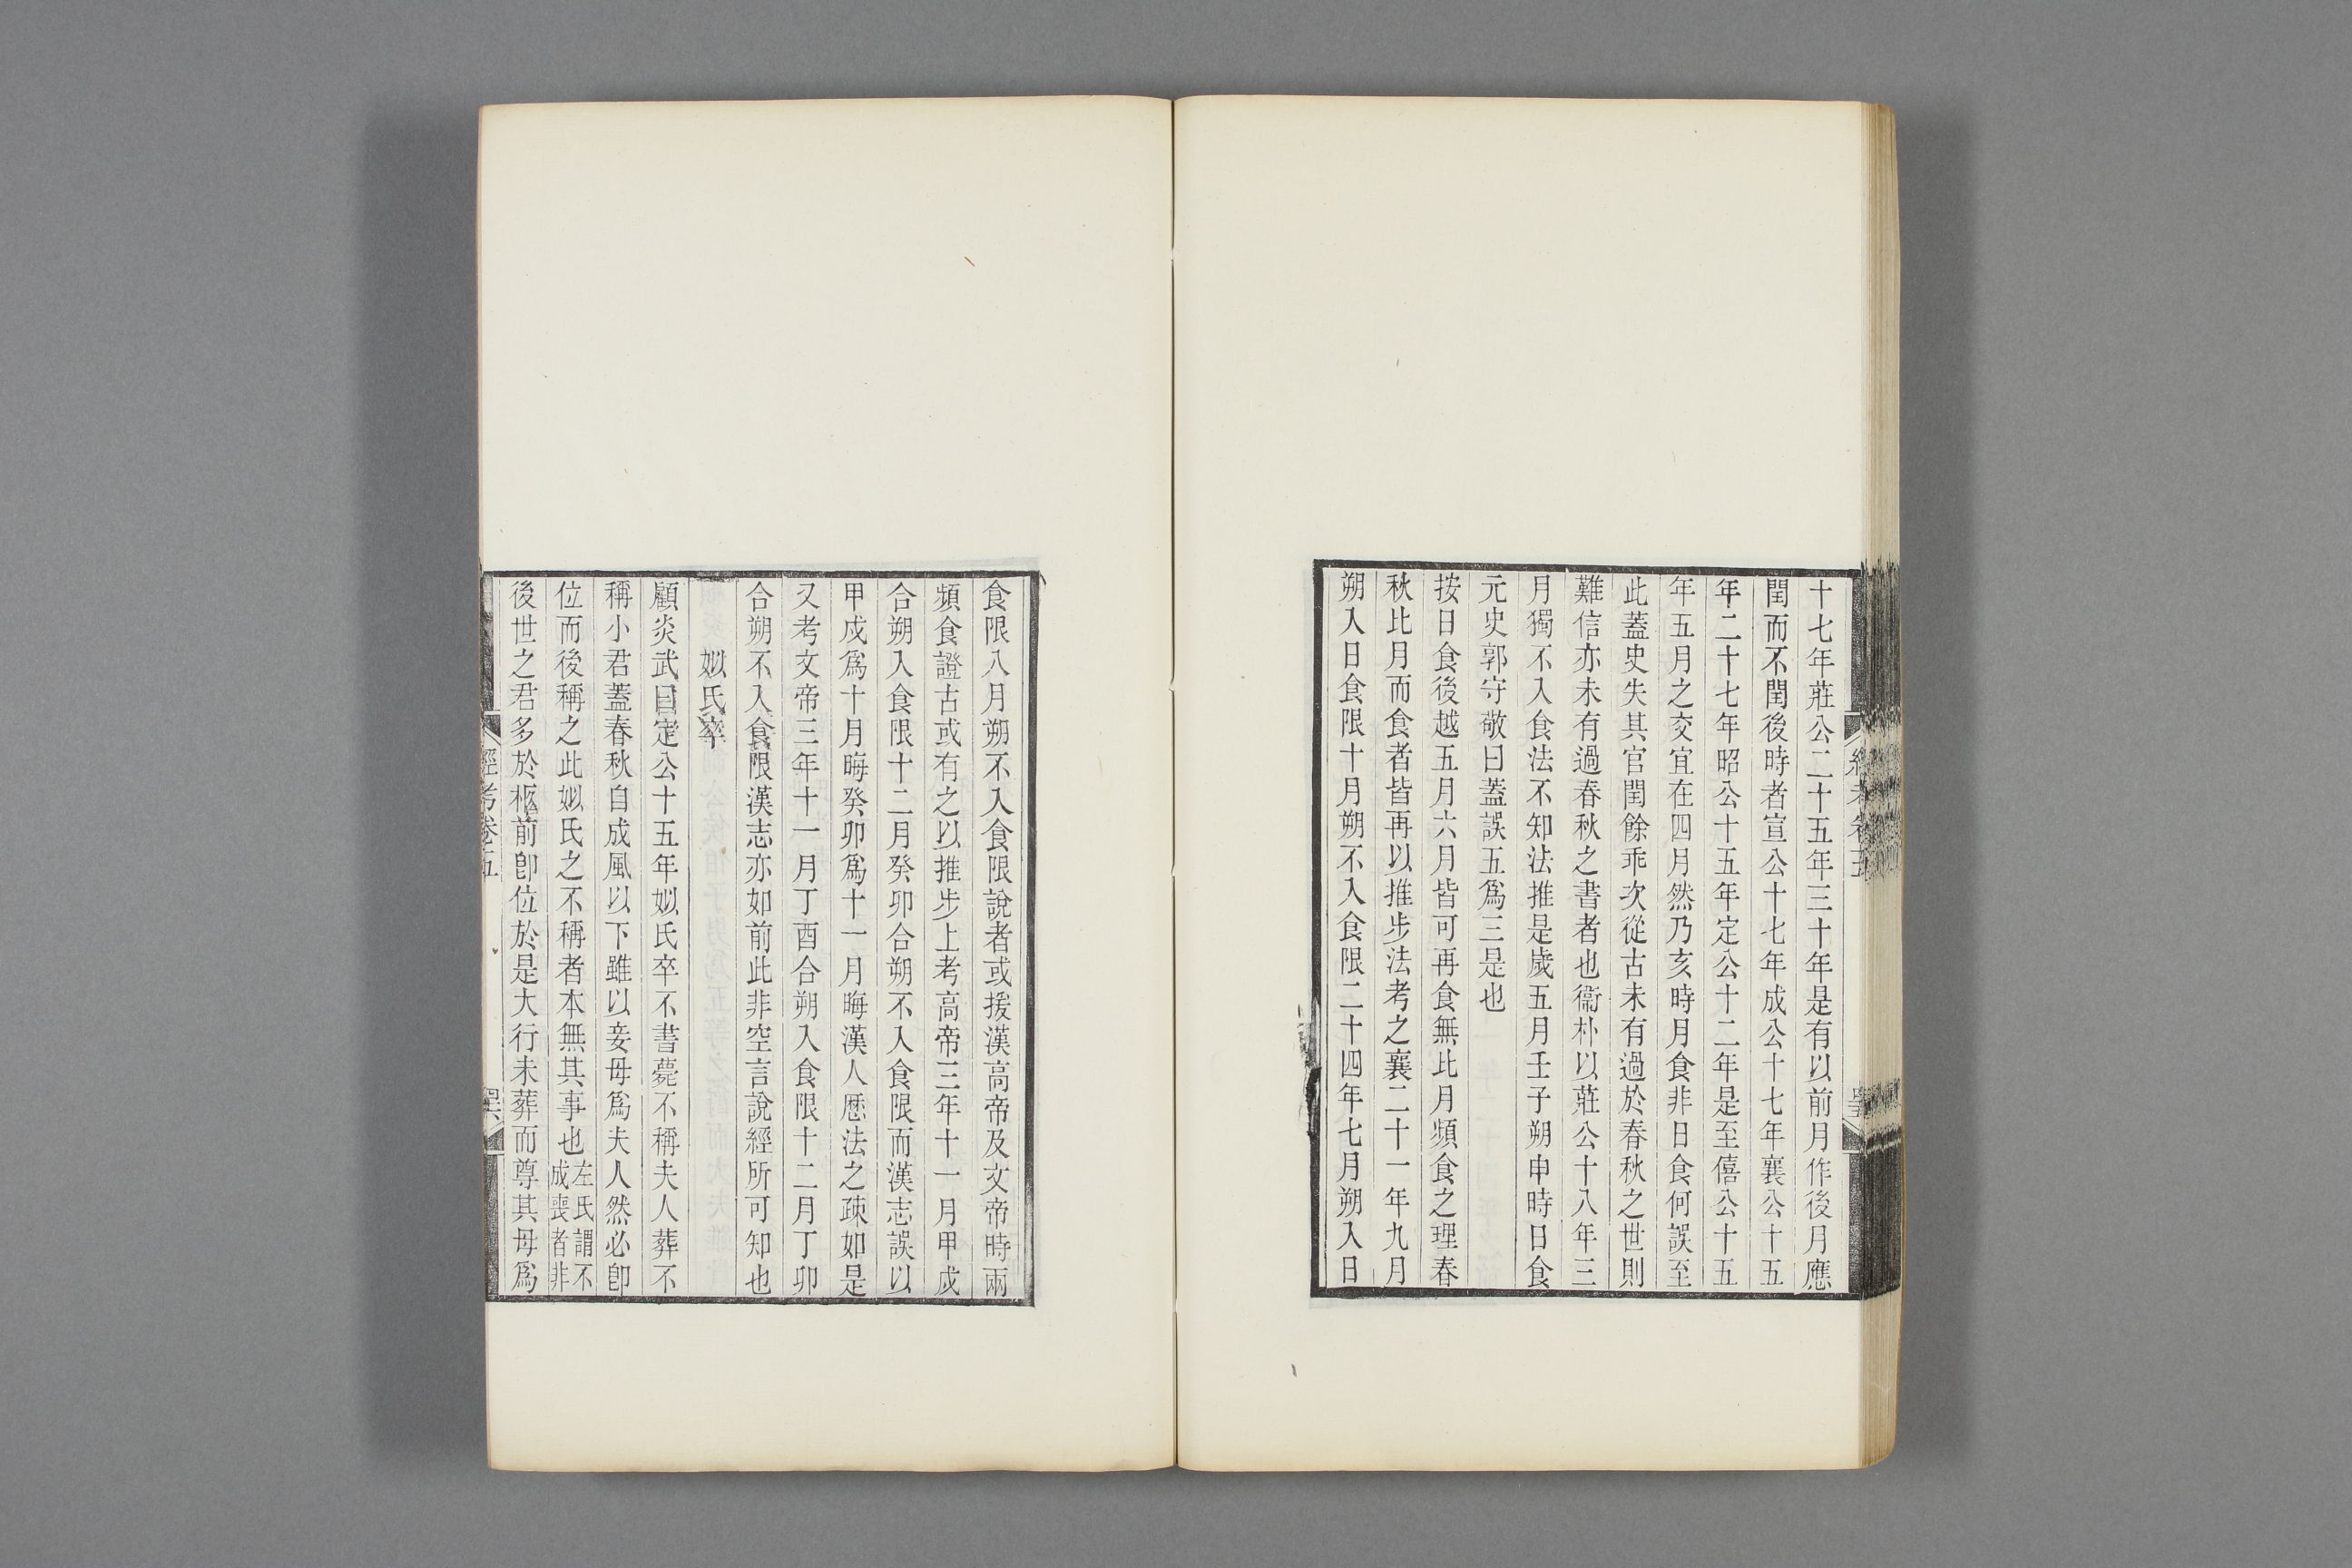 十七年莊公二十五年三十年是有以前月作後月應
閏而不閏後時者宣公十七年成公十七年襄公十五
年二十七年昭公十五年定公十二年是至僖公十五
年五月之交宜在四月然乃亥時月食非日食何誤至
此蓋史失其官閏餘乖次從古未有過於春秋之世則
難信亦未有過春秋之書者也衞朴以莊公十八年三
月獨不入食法不知法推是歲五月壬子朔申時日食
元史郭守敬曰蓋誤五爲三是也
按日食後越五月六月皆可再食無比月頻食之理春
秋比月而食者皆再以推步法考之襄二十一年九月
朔入日食限十月朔不入食限二十四年七月朔入日
食限八月朔不入食限說者或援漢高帝及文帝時兩
頻食證古或有之以推步上考高帝三年十一月甲戌
合朔入食限十二月癸卯合朔不入食限而漢志誤以
甲戌爲十月晦癸卯爲十一月晦漢人厯法之疎如是
又考文帝三年十一月丁酉合朔入食限十二月丁卯
合朔不入食限漢志亦如前此非空言說經所可知也
姒氏卒
顧炎武曰定公十五年姒氏卒不書薨不稱夫人葬不
稱小君蓋春秋自成風以下雖以妾母爲夫人然必卽
位而後稱之此姒氏之不稱者本無其事也左氏謂不成喪者非
後世之君多於柩前卽位於是大行未葬而尊其母爲
經考卷五